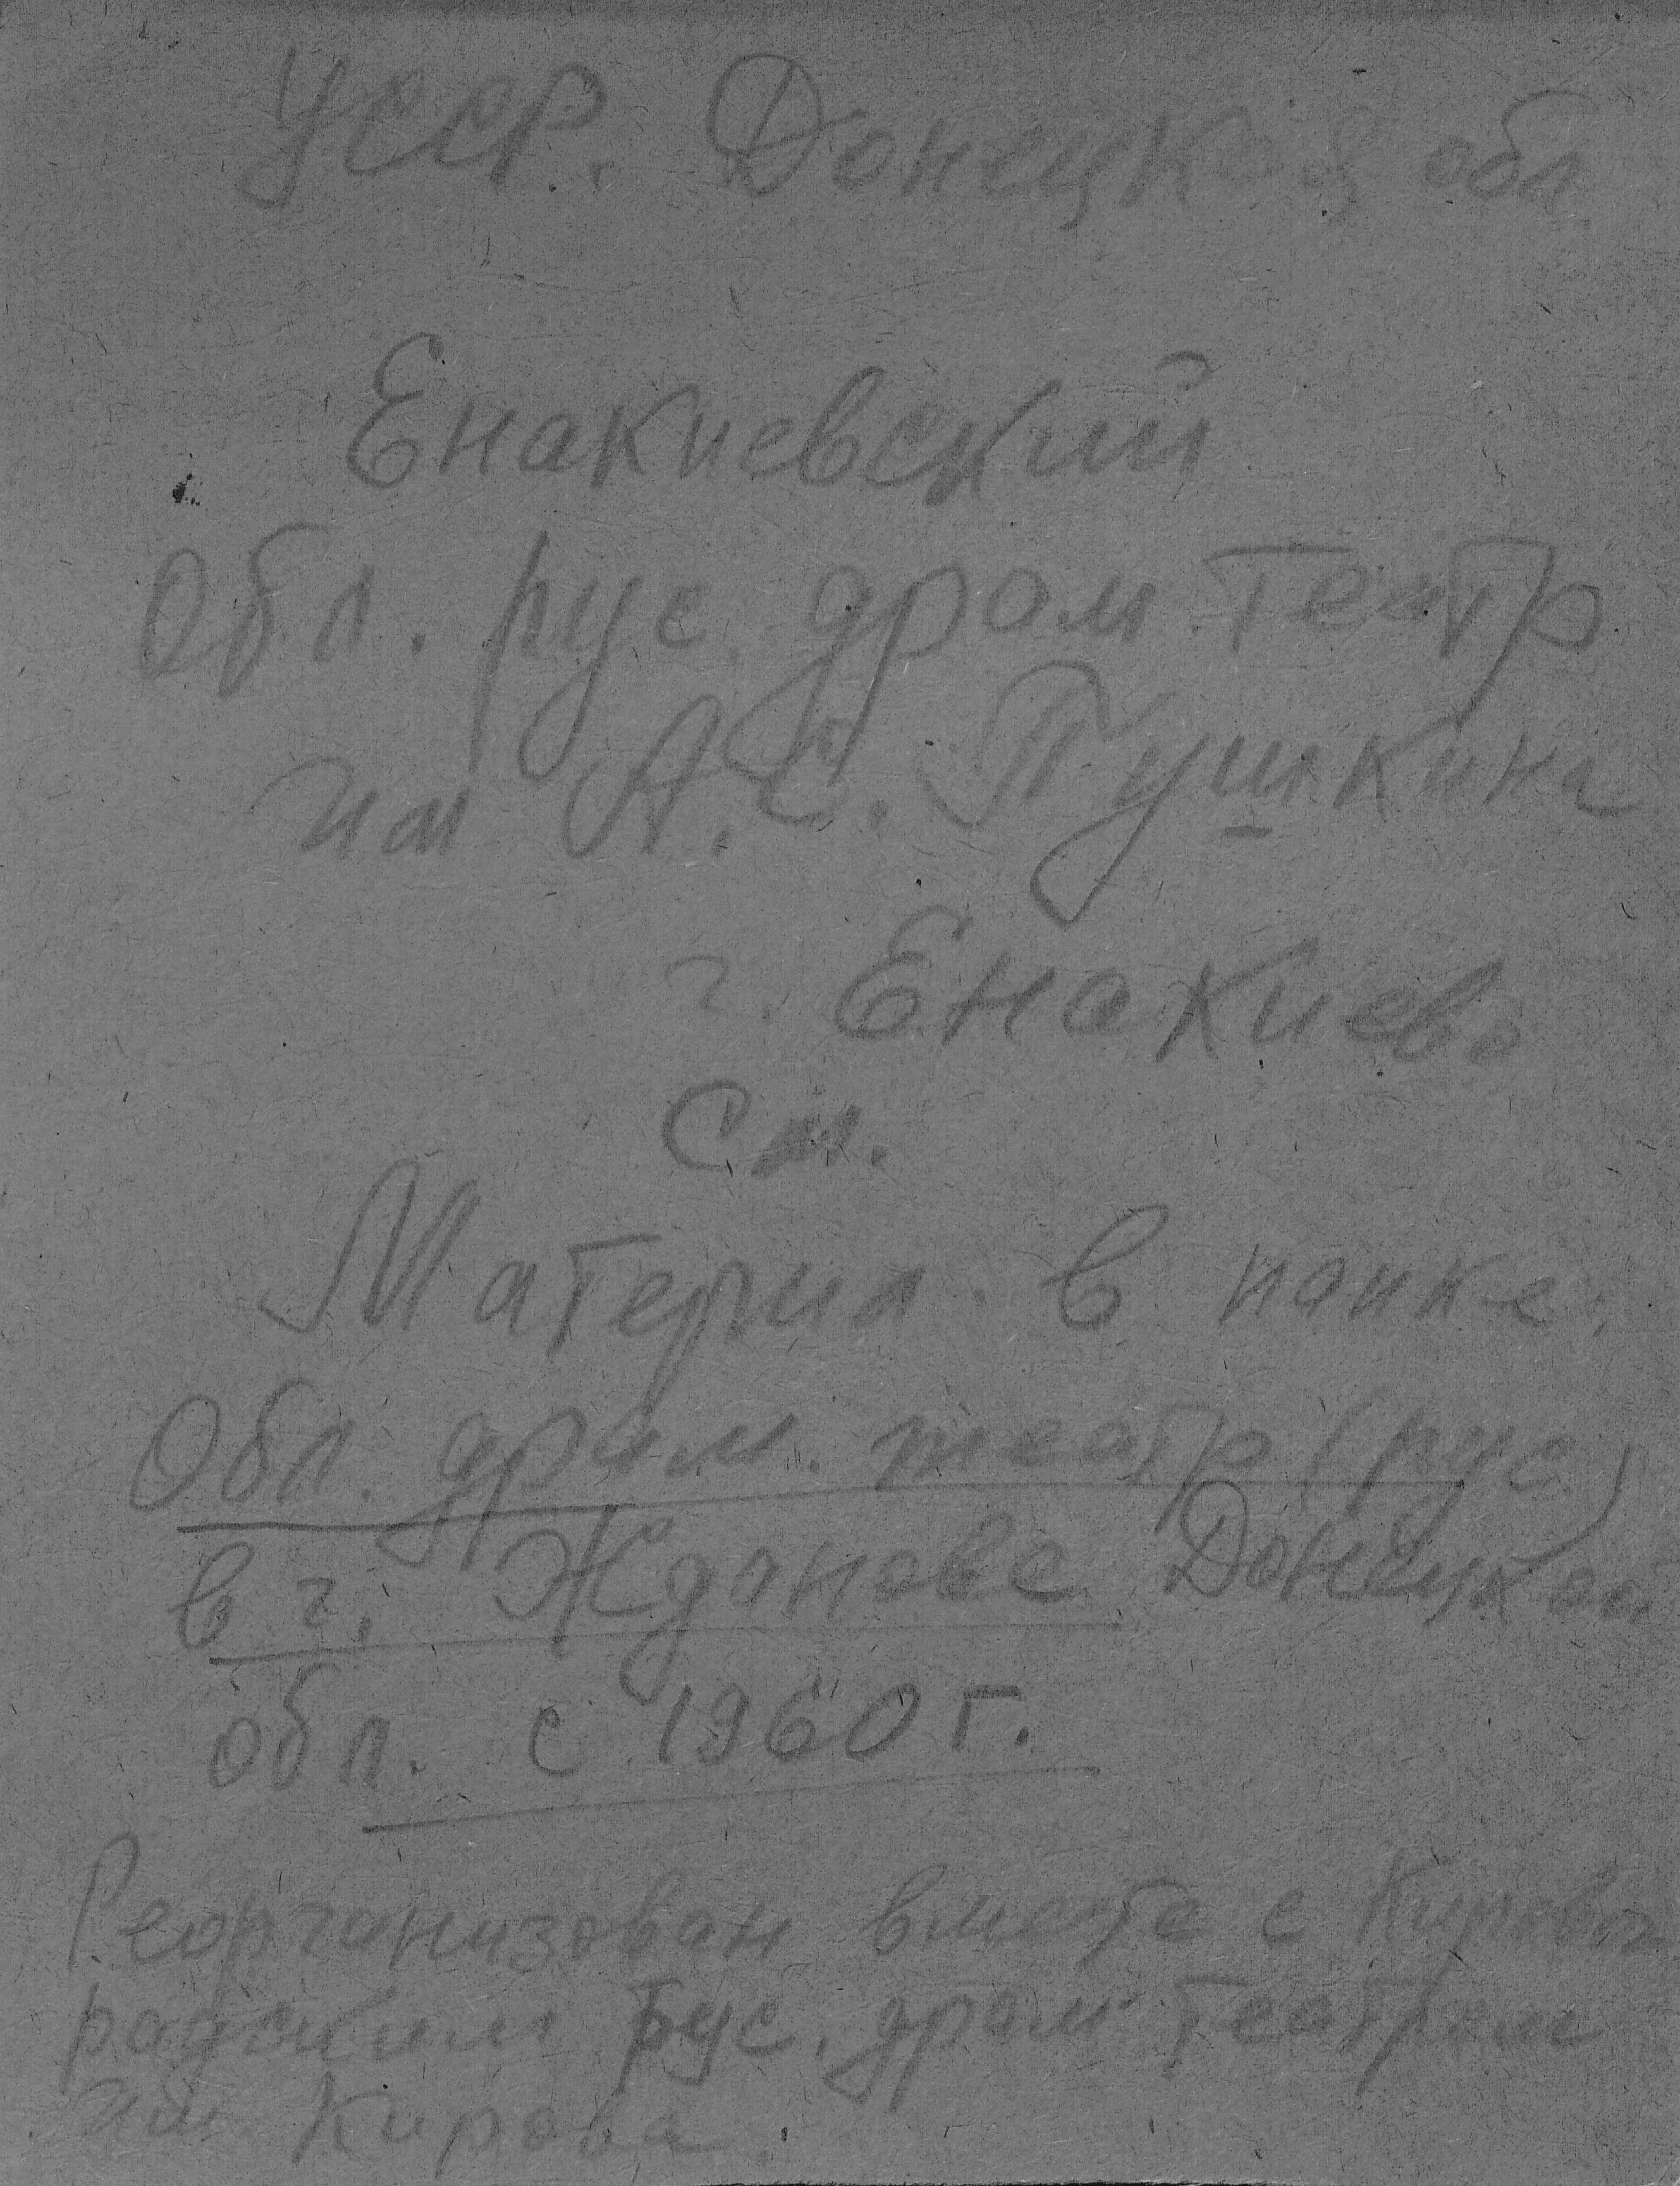 УССР. Донецкой обл
Енакиевский
Обл. рус. драм. театр
им А.С. Пушкина
г. Енакиево
См.
Материал. в папке:
Обл. драм. театр (рус.)
в г. Жданове Донецкой
обл. с 1960 г.
Реорганизован вместе с Кировог
радским рус. драм театром
им. Кирова.